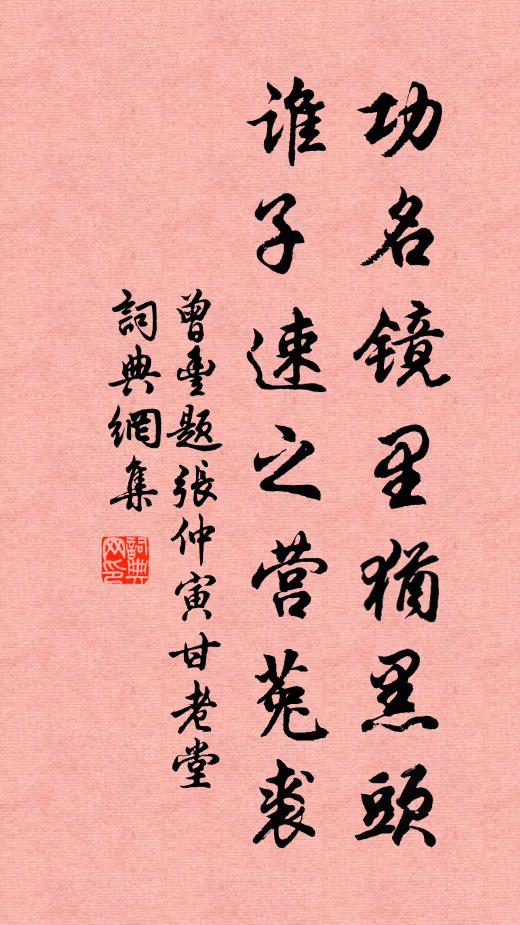 功名镜里犹黑頭
谁子速之营菟裘
曾豐题張仲寅甘老堂
詞典網集
詞典网印